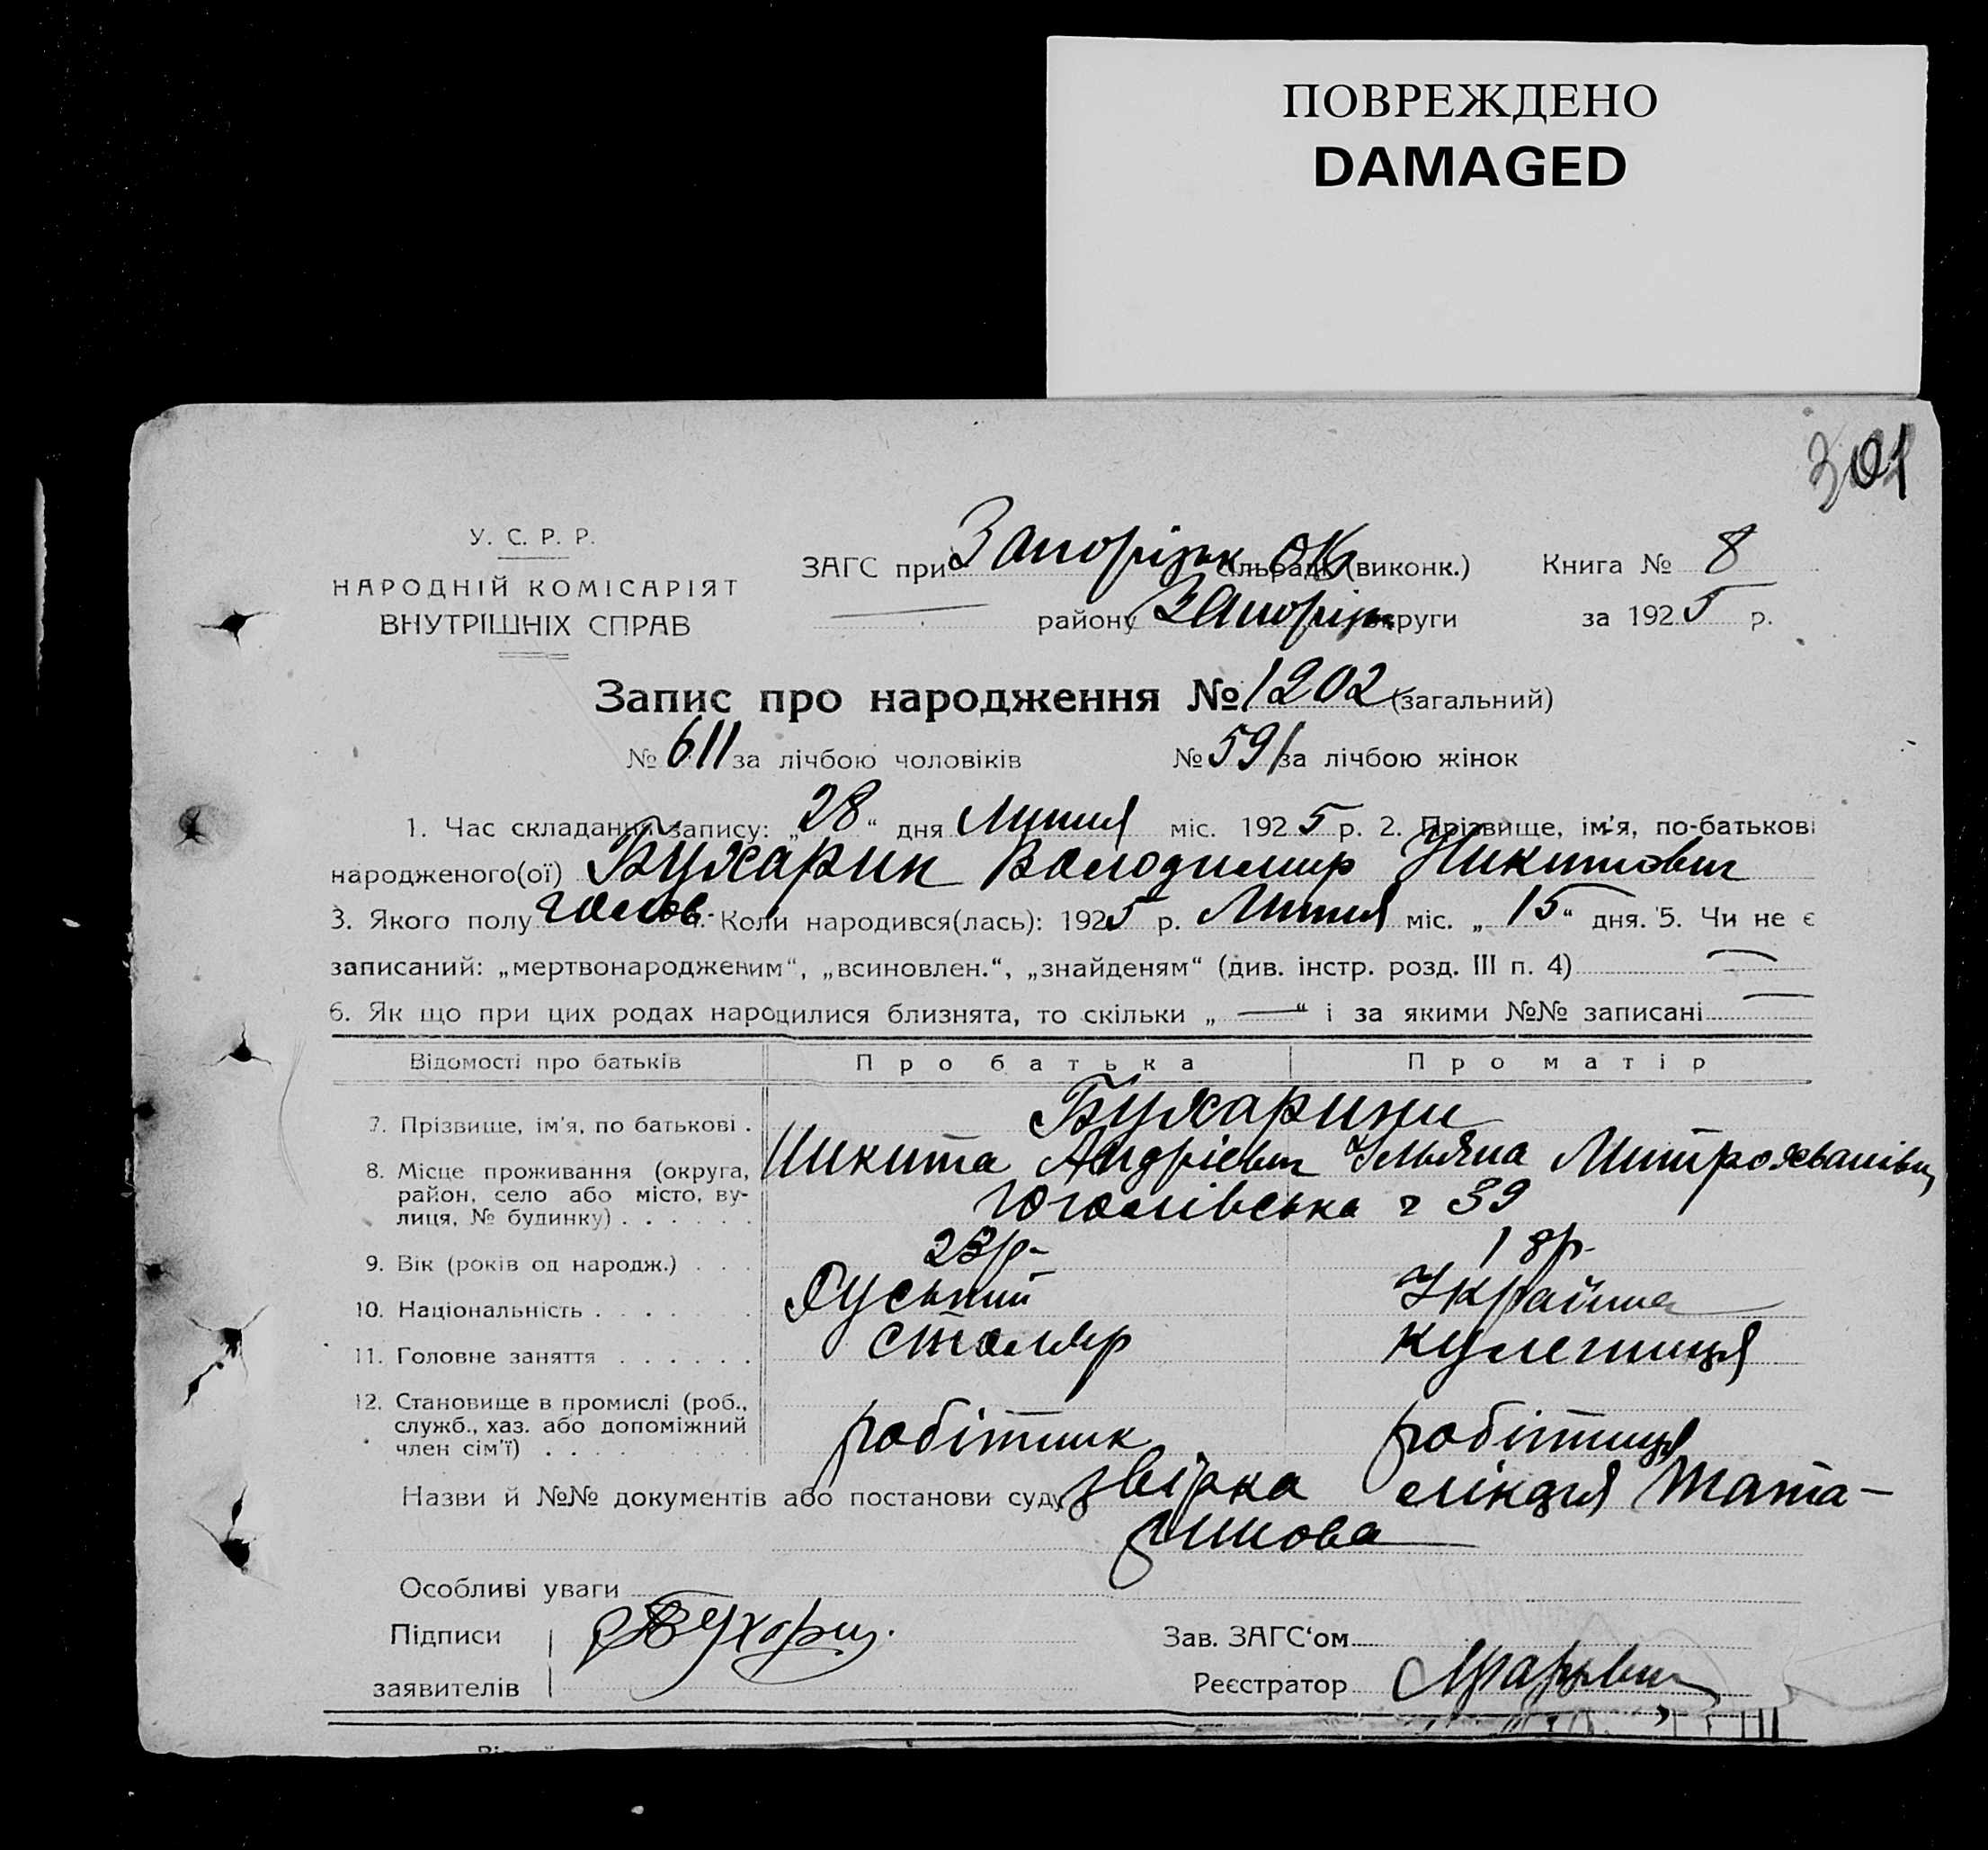 ПОВРЕЖДЕНО
DAMAGED
301
У. С. Р. Р.
НАРОДНІЙ КОМІСАРІЯТ
ВНУТРІШНІХ СПРАВ
ЗАГС при Запорізьк ОК сільради (виконк.) Книга № 8
району Запорізьк округи за 1925 р.
Запис про народження № 1202 (загальний)
№ 611 за лічбою чоловіків № 591 за лічбою жінок
1. Час складання запису: „28“ дня Липня міс. 1925 р. 2. Прізвище, ім'я, по-батькові
народженого(ої) Бухарин Володимир Никитович
3. Якого полу чолов. 4. Коли народився(лась): 1925 р. Липня міс. „15“ дня. 5. Чи не є
записаний: „мертвонародженим“, „всиновлен.“, „знайденям“ (див. інстр. розд. III п. 4)
6. Як що при цих родах народилися близнята, то скільки „—“ і за якими №№ записані
Відомості про батьків Про батька Про матір
7. Прізвище, ім'я, по батькові . Бухарини
Никита Андрієвич Ульяна Митрохванівн
8. Місце проживання (округа, район, село або місто, вулиця, № будинку) . . . . . . Гоголівська ч 39
9. Вік (років од народж.) . . . 23р- 18р-
10. Національність . . . . . . Руський Українка
11. Головне заняття . . . . . . столяр
12. Становище в промислі (роб., служб., хаз. або допоміжний член сім'ї) . . . . робітник робітниця
Назви й №№ документів або постанови суду
Особливі уваги
Підписи Бухарин. Зав. ЗАГС‘ом
заявителів Реєстратор